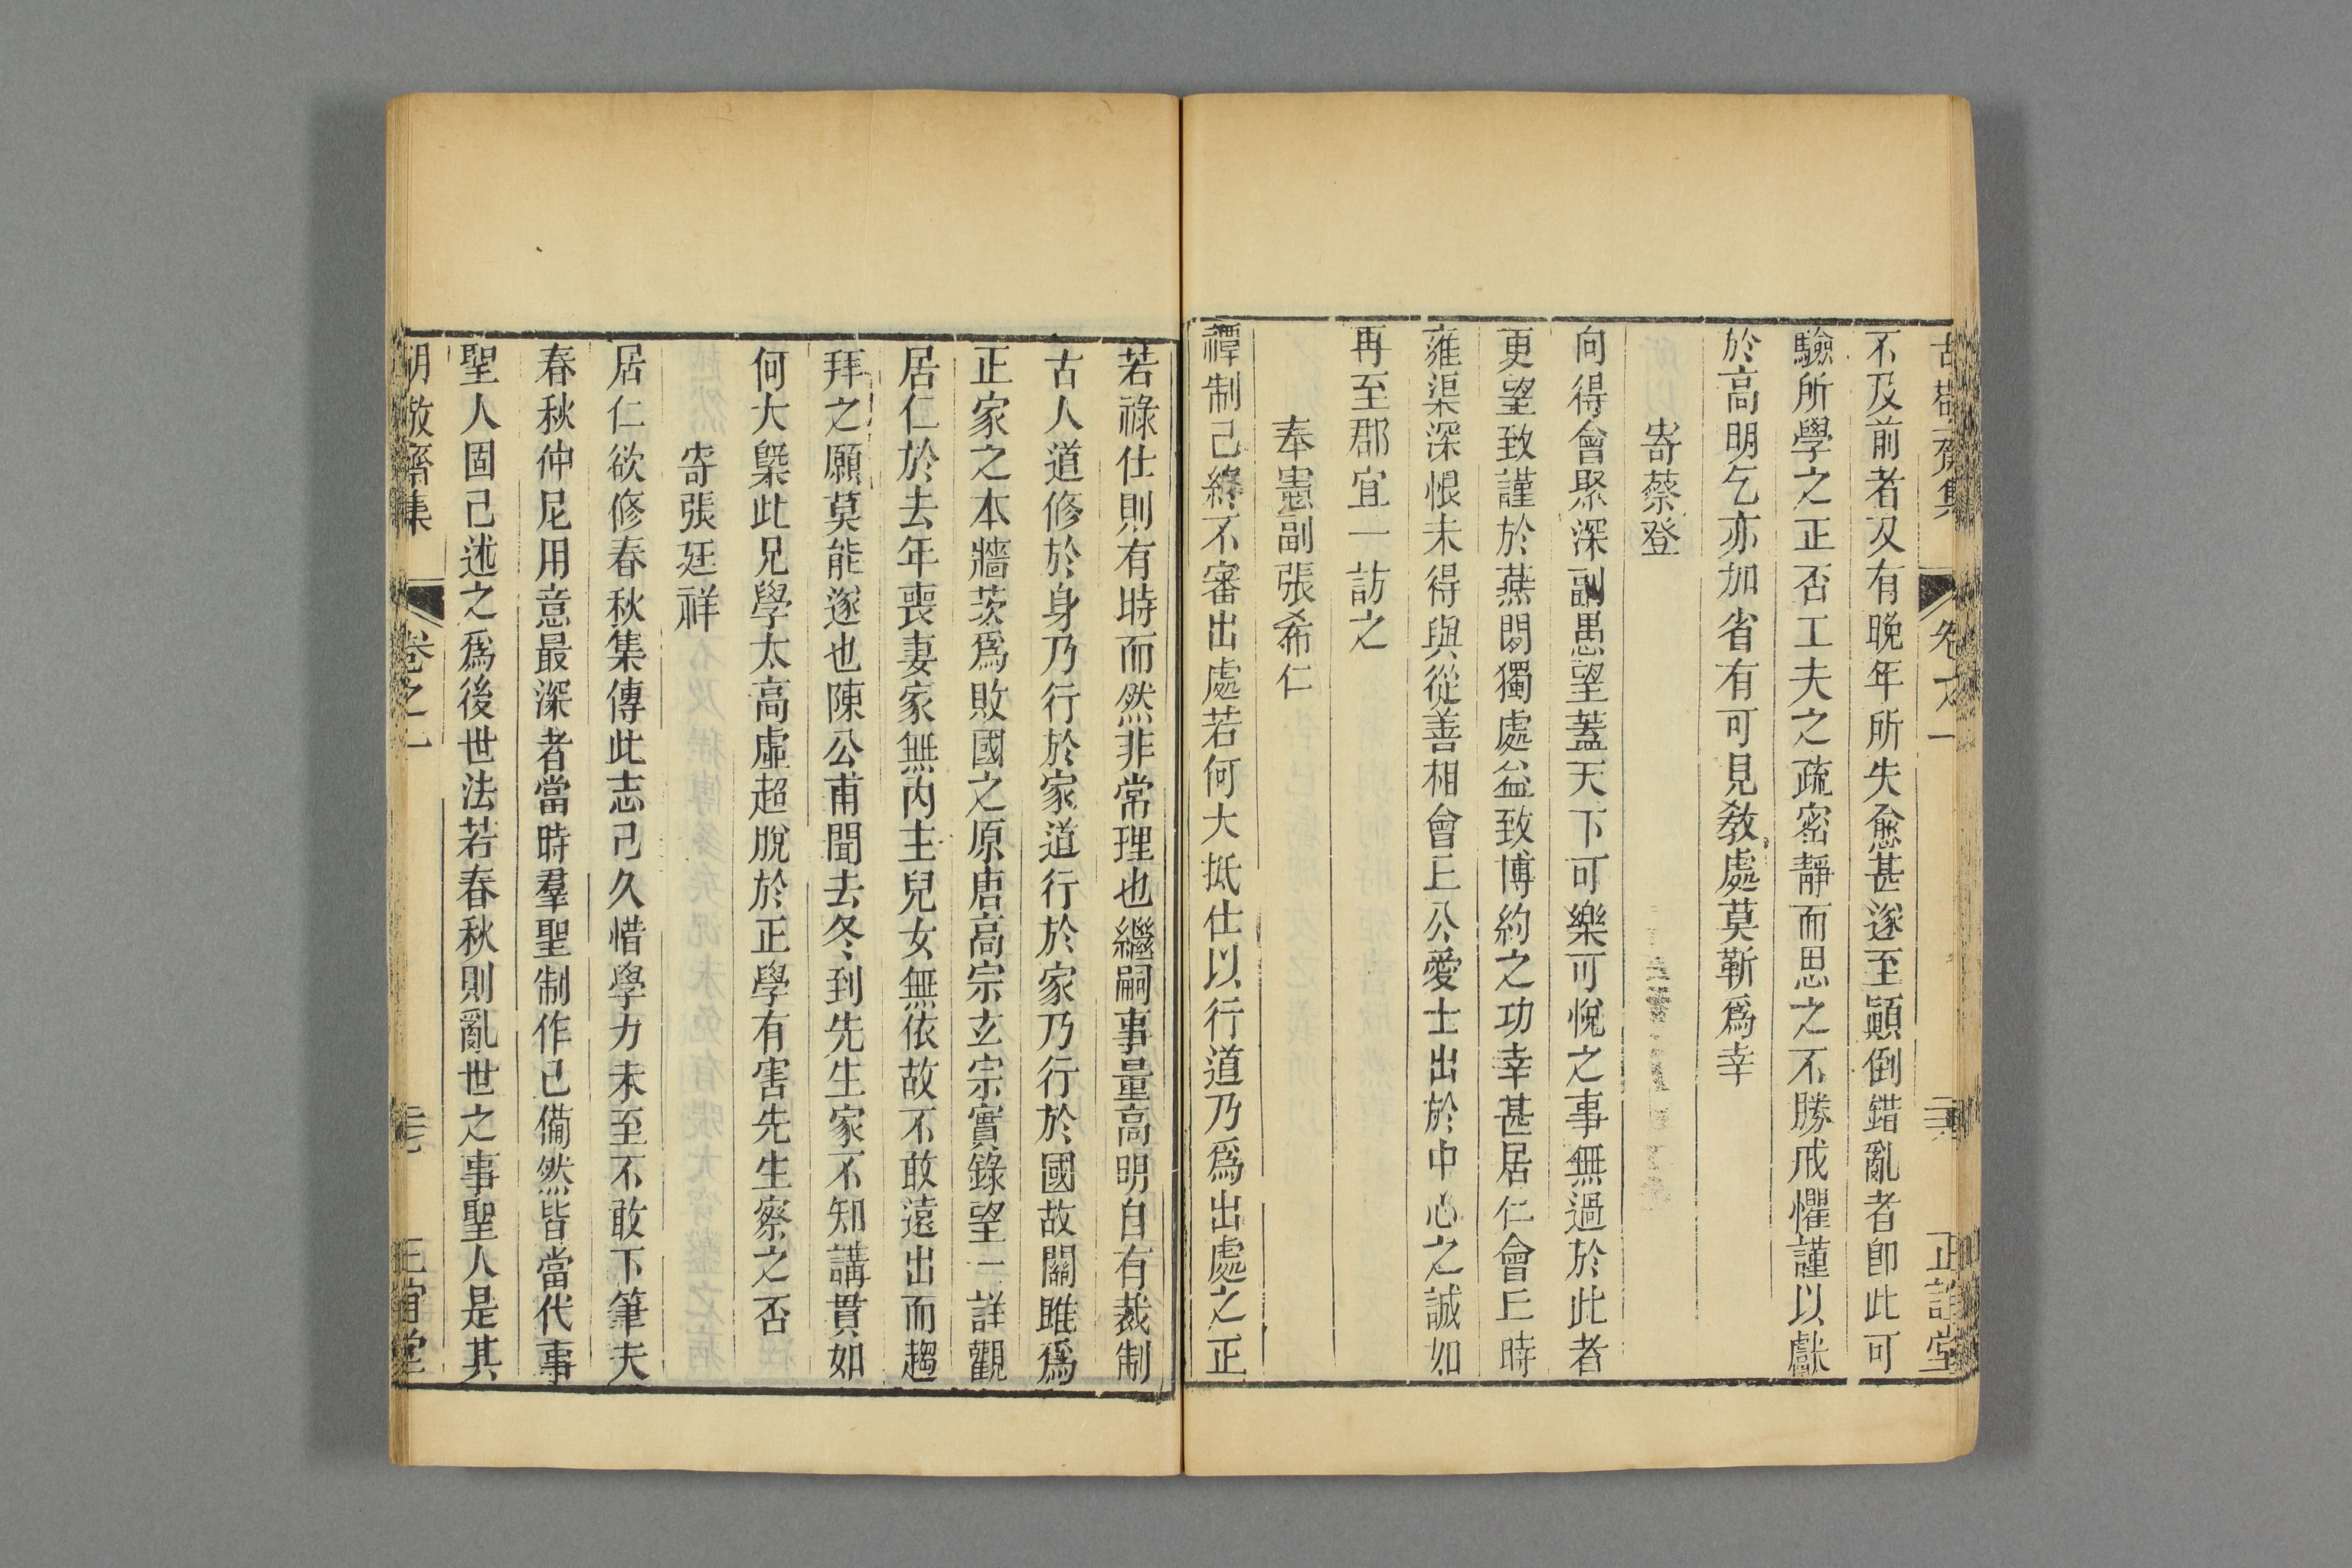 胡敬齋集 卷之一 正誼堂
不及前者又有晚年所失愈甚遂至顚倒錯亂者卽此可
驗所學之正否工夫之疏密靜而思之不勝戒懼謹以獻
於高明乞亦加省有可見敎處莫靳爲幸
寄蔡登
向得會聚深副愚望蓋天下可樂可悅之事無過於此者
更望致謹於燕閒獨處益致博約之功幸甚居仁會丘時
雍渠深恨未得與從善相會丘公愛士出於中心之誠如
再至郡宜一訪之
奉憲副張希仁
禫制已終不審出處若何大抵仕以行道乃爲出處之正
若祿仕則有時而然非常理也繼嗣事量高明自有裁制
古人道修於身乃行於家道行於家乃行於國故關雎爲
正家之本牆茨爲敗國之原唐高宗玄宗實錄望一詳觀
居仁於去年喪妻家無內主兒女無依故不敢遠出而趨
拜之願莫能遂也陳公甫聞去冬到先生家不知講貫如
何大槩此兄學太高虛超脫於正學有害先生察之否
寄張廷祥
居仁欲修春秋集傳此志己久惜學力未至不敢下筆夫
春秋仲尼用意最深者當時羣聖制作已備然皆當代事
聖人固己述之爲後世法若春秋則亂世之事聖人是其
胡敬齋集 卷之一 正誼堂